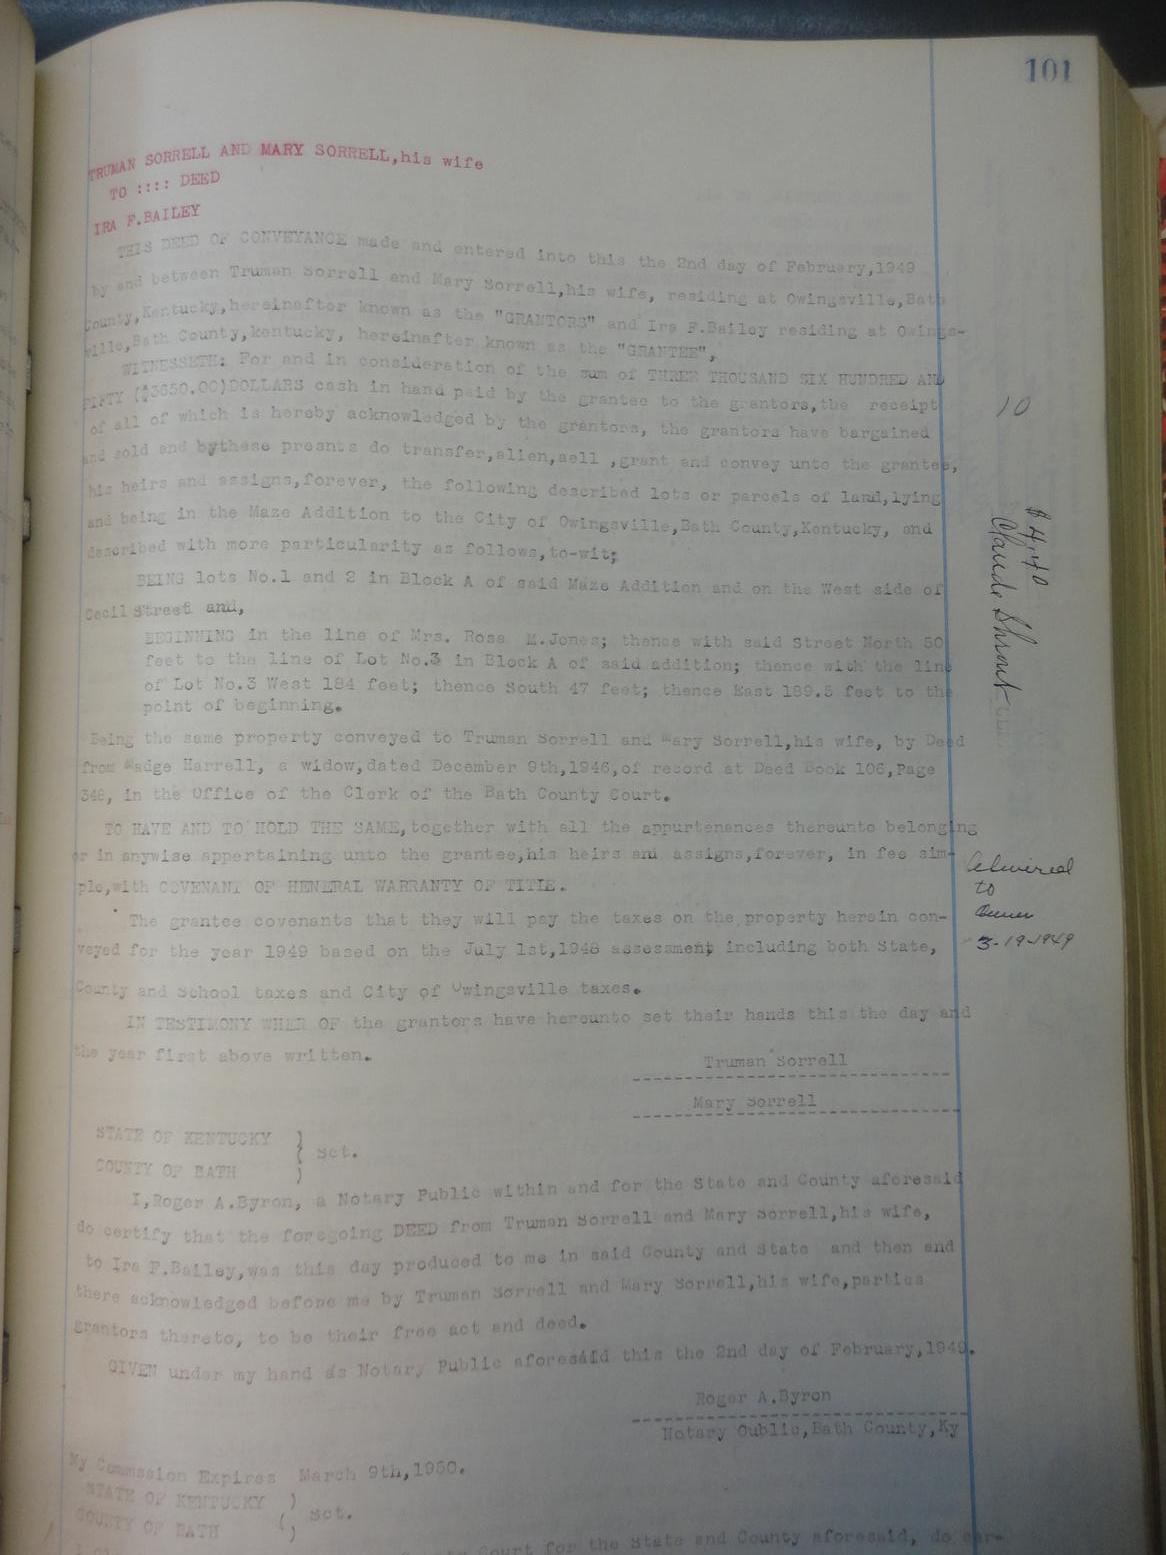 101
TRUMAN SORRELL AND MARY SORRELL,his wife
TO :::: DEED
IRA F.BAILEY
THIS DEED OF CONVEYANCE made and entered into this the 2nd day of February,1949
by and between Truman Sorrell and Mary Sorrell,his wife, residing at Owingsville,Bath
County,Kentucky,hereinafter known as the "GRANTORS" and Ira F.Bailey residing at Owings-
ville,Bath County,kentucky, hereinafter known as the "GRANTEE",
WITNESSETH: For and in consideration of the sum of THREE THOUSAND SIX HUNDRED AND
FIFTY ($3650.00)DOLLARS cash in hand paid by the grantee to the grantors,the receipt
of all of which is hereby acknowledged by the grantors, the grantors have bargained
and sold and bythese presnts do transfer,alien,aell ,grant and convey unto the grantee,
his heirs and assigns,forever, the following described lots or parcels of land,lying
and being in the Maze Addition to the City of Owingsville,Bath County,Kentucky, and
described with more particularity as follows,to-wit;
BEING lots No.1 and 2 in Block A of said Maze Addition and on the West side of
Cecil Street and,
BEGINNING in the line of Mrs. Rosa M.Jones; thence with said Street North 50
feet to the line of Lot No.3 in Block A of said addition; thence with the line
of Lot No.3 West 184 feet; thence South 47 feet; thence East 189.5 feet to the
point of beginning.
Being the same property conveyed to Truman Sorrell and Mary Sorrell,his wife, by Deed
from Madge Harrell, a widow,dated December 9th,1946,of record at Deed Book 106,Page
348, in the Office of the Clerk of the Bath County Court.
TO HAVE AND TO HOLD THE SAME,together with all the appurtenances thereunto belonging
or in anywise appertaining unto the grantee,his heirs and assigns,forever, in fee sim-
ple,with COVENANT OF HENERAL WARRANTY OF TITIE.
The grantee covenants that they will pay the taxes on the property herein con-
veyed for the year 1949 based on the July 1st,1948 assessment including both State,
County and School taxes and City of Owingsville taxes.
IN TESTIMONY WHER OF the grantors have hereunto set their hands this the day and
the year first above written.
Truman Sorrell
Mary Sorrell
STATE OF KENTUCKY
Sct.
COUNTY OF BATH
I,Roger A.Byron, a Notary Public within and for the State and County aforesaid
do certify that the foregoing DEED from Truman Sorrell and Mary Sorrell,his wife,
to Ira F.Bailey,was this day produced to me in said County and State and then and
there acknowledged before me by Truman Sorrell and Mary Sorrell,his wife,parties
grantors thereto, to be their free act and deed.
GIVEN under my hand as Notary Public aforesaid this the 2nd day of February,1949.
Roger A.Byron
Notary Oublic,Bath County,Ky
My Commssion Expires March 9th,1950.
STATE OF KENTUCKY
Sct.
COUNTY OF BATH
Court for the State and County aforesaid, do cer-
10
$4.40
Claude Shrout
to
3-19-1949